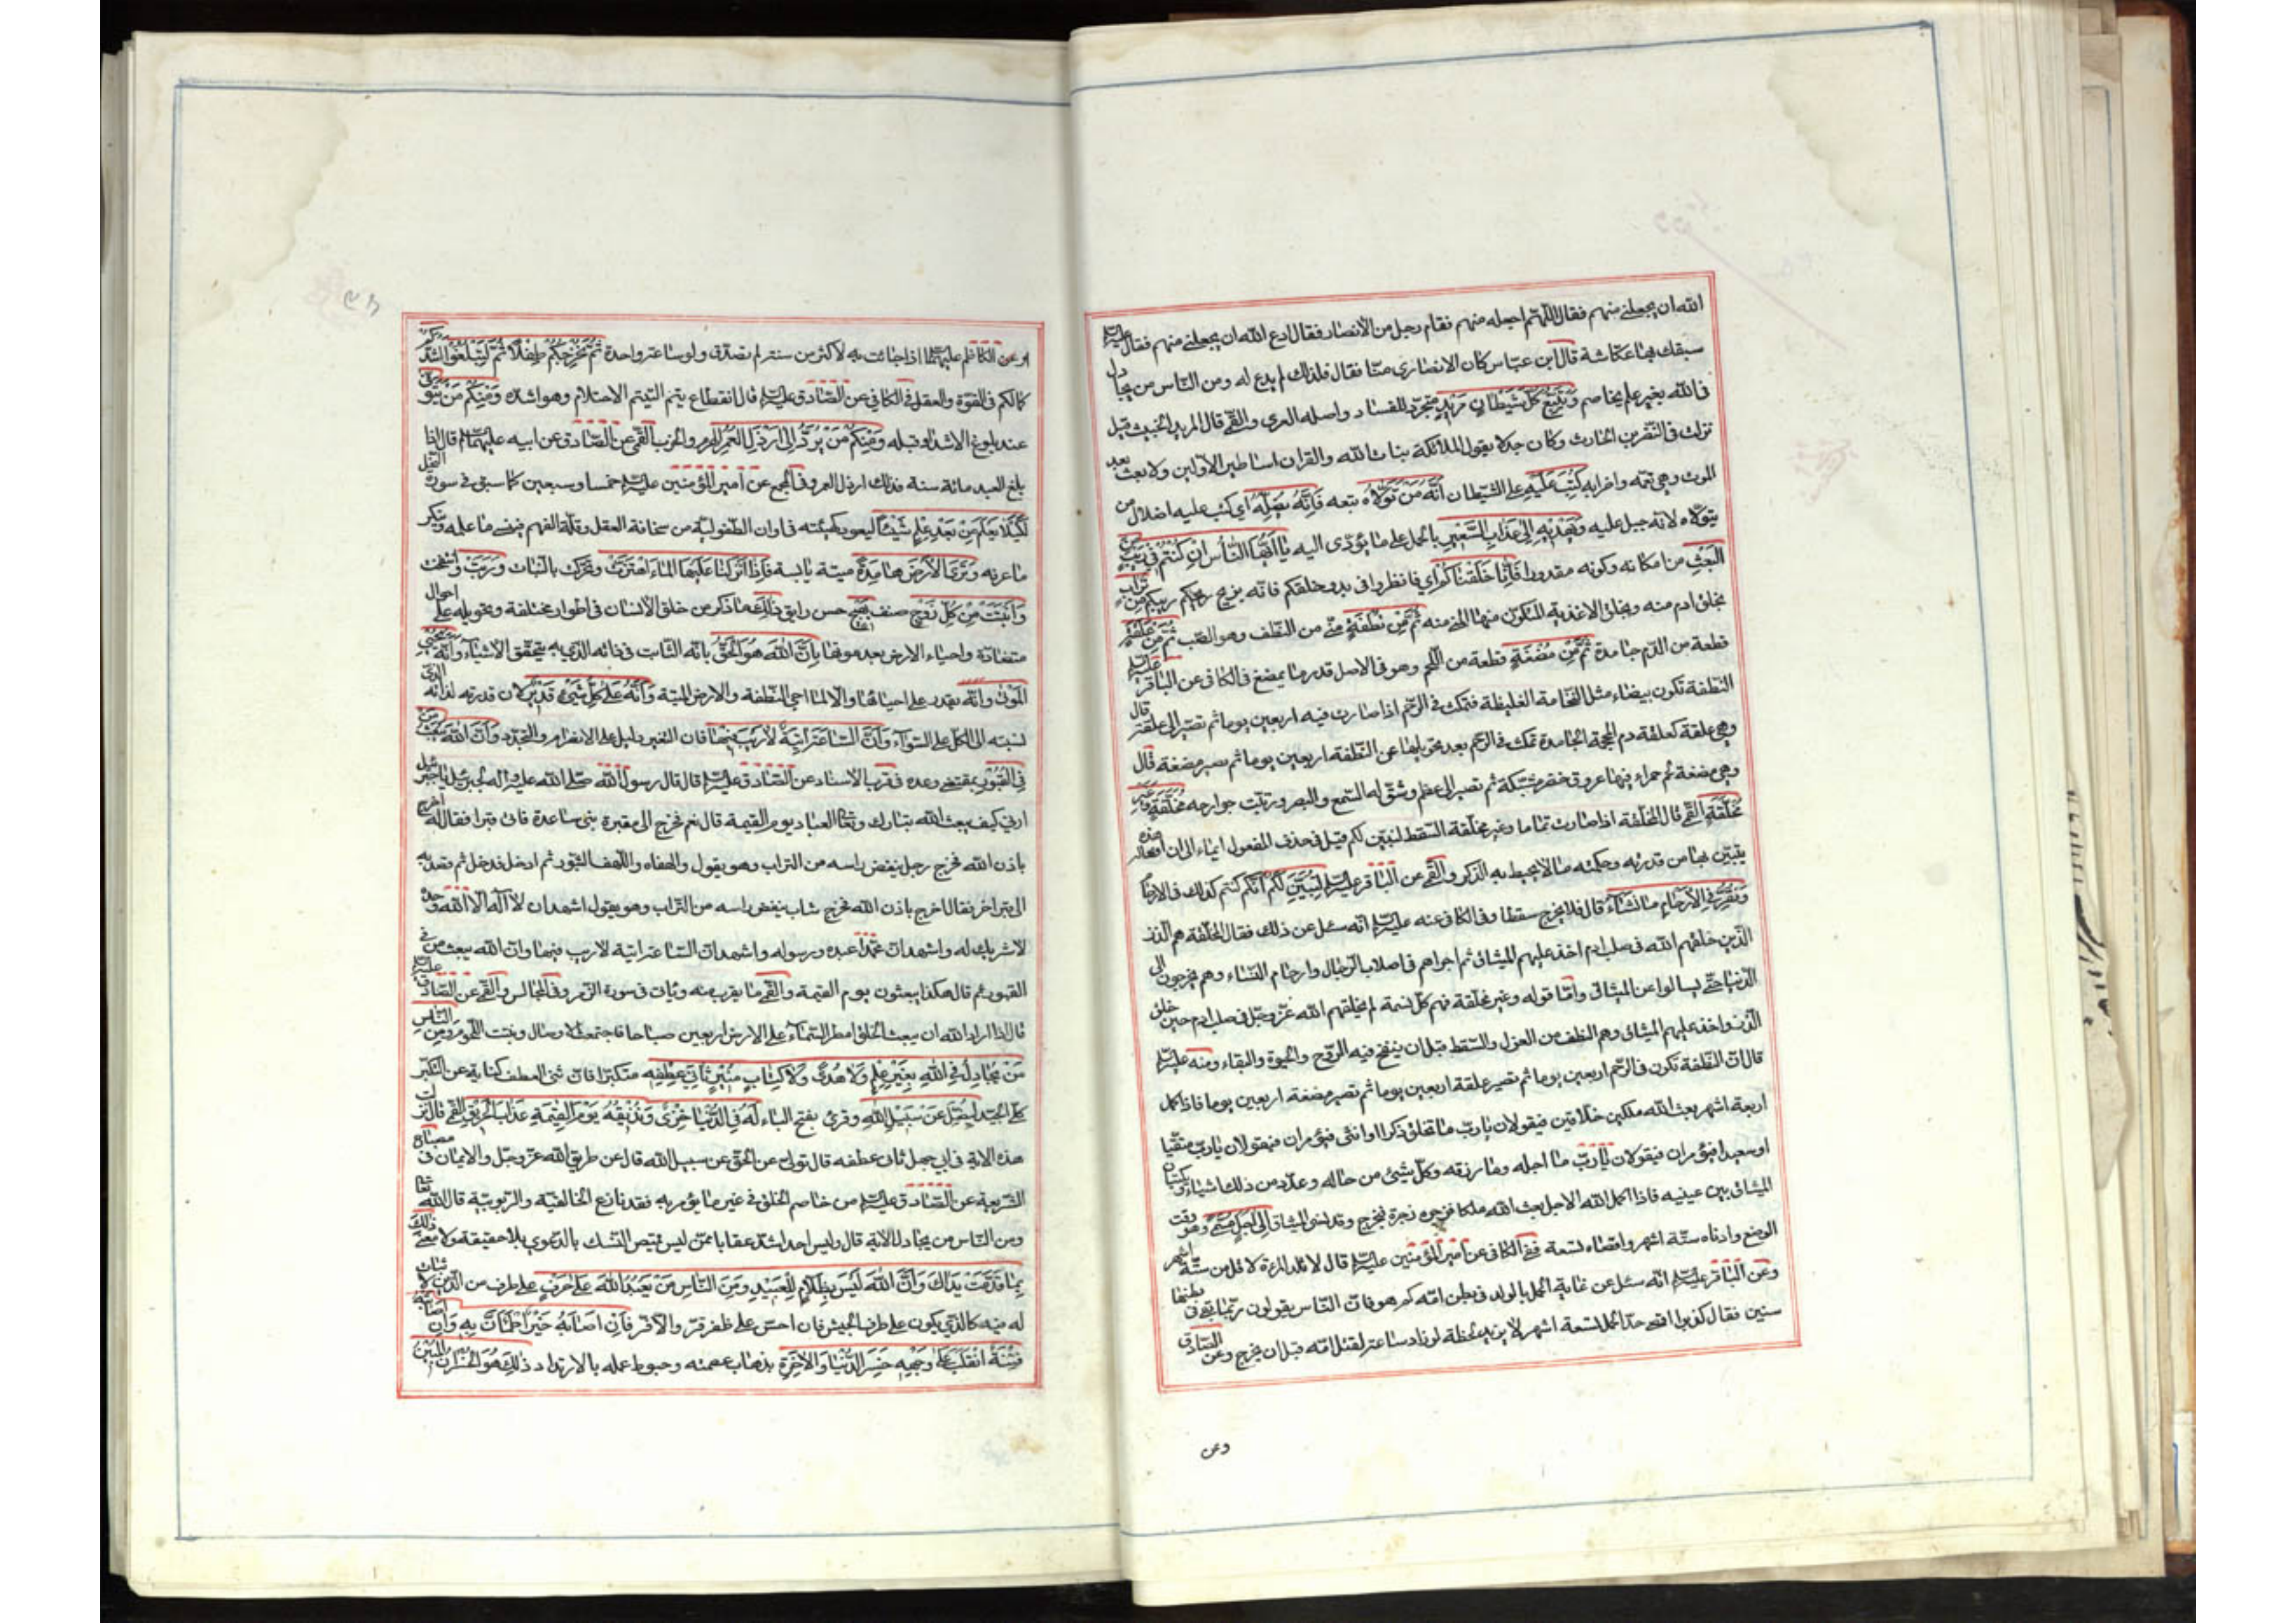 الله ان يجعلني منهم فقال اللهم اجعله منهم فقام رجل من الأنصار فقال ادع الله ان يجعلني منهم فقال عليه السلم
سبقك بها عكاشة قال ابن عباس كان الانصاري منافقا فلذلك لم يدع له ومن الناس من يجادل
في الله بغير علم يخاصم ويتبع كل شيطان مريد متجرد للفساد واصله العرى والقمي قال المريد الخبيث قيل
نزلت في النضر بن الحارث وكان جدلا يقول الملائكة بنات الله والقران اساطير الاولين ولا بعث بعد
الموت وهي تعمه واضرابه كتب عليه على الشيطان أنه من تولاه تبعه فأنه يضله اي كتب عليه اضلال من
يتولاه لانه جبل عليه ويهديه إلى عذاب السعير بالحمل على ما يؤدى اليه يا أيها الناس ان كنتم في ريب من
البعث من امكانه وكونه مقدورا فإنا خلقناكم اي فانظروا في بدو خلقكم فانه يزيح ريبكم من تراب
بخلق ادم منه وبخلق الاغذية المتكون منها المني منه ثم من نطفة مني من النطف وهو الصب ثم من علقة
قطعة من الدم جامدة ثم من مضغة قطعة من اللحم وهو في الاصل قدر ما يمضغ في الكافي عن الباقر عليه السلم
النطفة تكون بيضاء مثل النخامة الغليظة فتمكث في الرحم اذا صارت فيه اربعين يوما ثم تصير الى علقة قال
وهي علقة كعلقة دم المحجمة الجامدة تمكث في الرحم بعد تحويلها عن النطفة اربعين يوما ثم تصير مضغة قال
وهي مضغة لحم حمراء فيها عروق خضر مشبكة ثم تصير الى عظم وشق له السمع والبصر ورتبت جوارحه مخلقة وغير
مخلقة القمي قال المخلقة اذا صارت تماما وغير مخلقة السقط لنبين لكم قيل في حذف المفعول ايماء الى ان افعاله هذه
يتبين بها من قدرته وحكمته ما لا يحيط به الذكر والقمي عن الباقر عليه السلم لنبين لكم أنكم كنتم كذلك في الارحام
ونقر في الأرحام ما نشاء قال فلا يخرج سقطا وفي الكافي عنه عليه السلم انه سئل عن ذلك فقال المخلقة هم الذر
الذين خلقهم الله في صلب ادم اخذ عليهم الميثاق ثم اجراهم في اصلاب الرجال وارحام النساء وهم يخرجون الى
الدنيا حتى يسالوا عن الميثاق وأما قوله وغير مخلقة فهم كل نسمة لم يخلقهم الله عز وجل في صلب ادم حين خلق
الذر واخذ عليهم الميثاق وهم النطف من العزل والسقط قبل ان ينفخ فيه الروح والحيوة والبقاء وعنه عليه السلم
قال ان النطفة تكون في الرحم اربعين يوما ثم تصير علقة اربعين يوما ثم تصير مضغة اربعين يوما فاذا كمل
اربعة اشهر بعث الله ملكين خلاقين فيقولان يا رب ما تخلق ذكرا او انثى فيؤمران فيقولان يا رب شقيا
او سعيدا فيؤمران فيقولان يا رب ما اجله وما رزقه وكل شيء من حاله وعدد من ذلك اشياء ويكتبان
الميثاق بين عينيه فاذا اكمل الله الاجل بعث الله ملكا فزجره زجرة فيخرج وقد نسى الميثاق إلى أجل مسمى وهو وقت
الوضع وادناه ستة اشهر واقصاه تسعة ففي الكافي عن امير المؤمنين عليه السلم قال لا تلد المرءة لاقل من ستة اشهر
وعن الباقر عليه السلم انه سئل عن غاية الحمل بالولد في بطن امه كم هو فان الناس يقولون ربما بقي في بطنها
سنين فقال كذبوا اقصى حد الحمل تسعة اشهر لا يزيد لحظة لو زاد ساعة لقتل امه قبل ان يخرج وعن الصادق
وعن
او عن الكاظم عليهما السلم اذا جائت به لاكثر من سنة لم تصدق ولو ساعة واحدة ثم نخرجكم طفلا ثم لتبلغوا أشدكم
كمالكم في القوة والعقل في الكافي عن الصادق عليه السلم قال انقطاع يتم اليتيم الاحتلام وهو اشده ومنكم من يتوفى
عند بلوغ الاشد او قبله ومنكم من يرد إلى ارذل العمر الهرم والخرف القمي عن الصادق عن ابيه عليهما السلم قال اذا
بلغ العبد مائة سنة فذلك ارذل العمر وفي المجمع عن أمير المؤمنين عليه السلم خمسا وسبعين كما سبق في سورة النحل
لكيلا يعلم من بعد علم شيئا ليعود كهيئته في اوان الطفولية من سخافة العقل وقلة الفهم فينسى ما علمه وينكر
ما عرفه وترى الأرض هامدة ميتة يابسة فإذا أنزلنا عليها الماء اهتزت وتحركت بالنبات وربت وانتفخت
وأنبتت من كل زوج صنف بهيج حسن رايق ذلك ما ذكر من خلق الانسان في اطوار مختلفة وتحويله على احوال
متضادة واحياء الارض بعد موتها بأن الله هو الحق بانه الثابت في ذاته الذي به يتحقق الاشياء وأنه يحيي
الموتى وانه يقدر على احيائها والا لما احيى النطفة والارض الميتة وأنه على كل شيء قدير لان قدرته لذاته الذي
نسبته الى الكل على السواء وأن الساعة اتية لا ريب فيها فان التغير دليل على الانصرام والتجدد وأن الله يبعث من
في القبور بمقتضى وعده في قرب الاسناد عن الصادق عليه السلم قال قال رسول الله صلى الله عليه واله لجبرئيل يا جبرئيل
ارني كيف يبعث الله تبارك وتعالى العباد يوم القيمة قال نعم فخرج الى مقبرة بني ساعدة فاتى قبرا فقال له اخرج
باذن الله فخرج رجل ينفض راسه من التراب وهو يقول والهفاه واللهف الثبور ثم ادخل فدخل ثم قصد به
الى قبر اخر فقال اخرج باذن الله فخرج شاب ينفض راسه من التراب وهو يقول اشهد ان لا اله الا الله وحده
لا شريك له واشهد ان محمدا عبده ورسوله واشهد ان الساعة اتية لا ريب فيها وان الله يبعث من في
القبور ثم قال هكذا يبعثون يوم القيمة والقمي ما يقرب منه وياتي في سورة الزمر وفي المجالس والقمي عن الصادق عليه السلم
قال اذا اراد الله ان يبعث الخلق امطر السماء على الارض اربعين صباحا فاجتمعت الاوصال ونبتت اللحوم ومن الناس
من يجادل في الله بغير علم ولا هدى ولا كتاب منير ثاني عطفه متكبرا فان ثنى العطف كناية عن التكبر
كلي الجيد ليضل عن سبيل الله وقرئ بفتح الياء له في الدنيا خزي ونذيقه يوم القيمة عذاب الحريق القمي قال نزلت
هذه الاية في ابي جهل ثاني عطفه قال تولى عن الحق عن سبيل الله قال عن طريق الله عز وجل والايمان في مصباح
الشريعة عن الصادق عليه السلم من خاصم الخلق في غير ما يؤمر به فقد نازع الخالقية والربوبية قال الله تعالى
ومن الناس من يجادل الاية قال وليس احد اشد عقابا ممن لبس قميص النسك بالدعوى بلا حقيقة ولا معنى ذلك
بما قدمت يداك وأن الله ليس بظلام للعبيد ومن الناس من يعبد الله على حرف على طرف من الدين لا ثبات
له فيه كالذي يكون على طرف الجيش فان احس على ظفر قر والا فر فإن اصابه خير اطمأن به وإن أصابته
فتنة انقلب على وجهه خسر الدنيا والاخرة بذهاب عصمته وحبوط عمله بالارتداد ذلك هو الخسران المبين